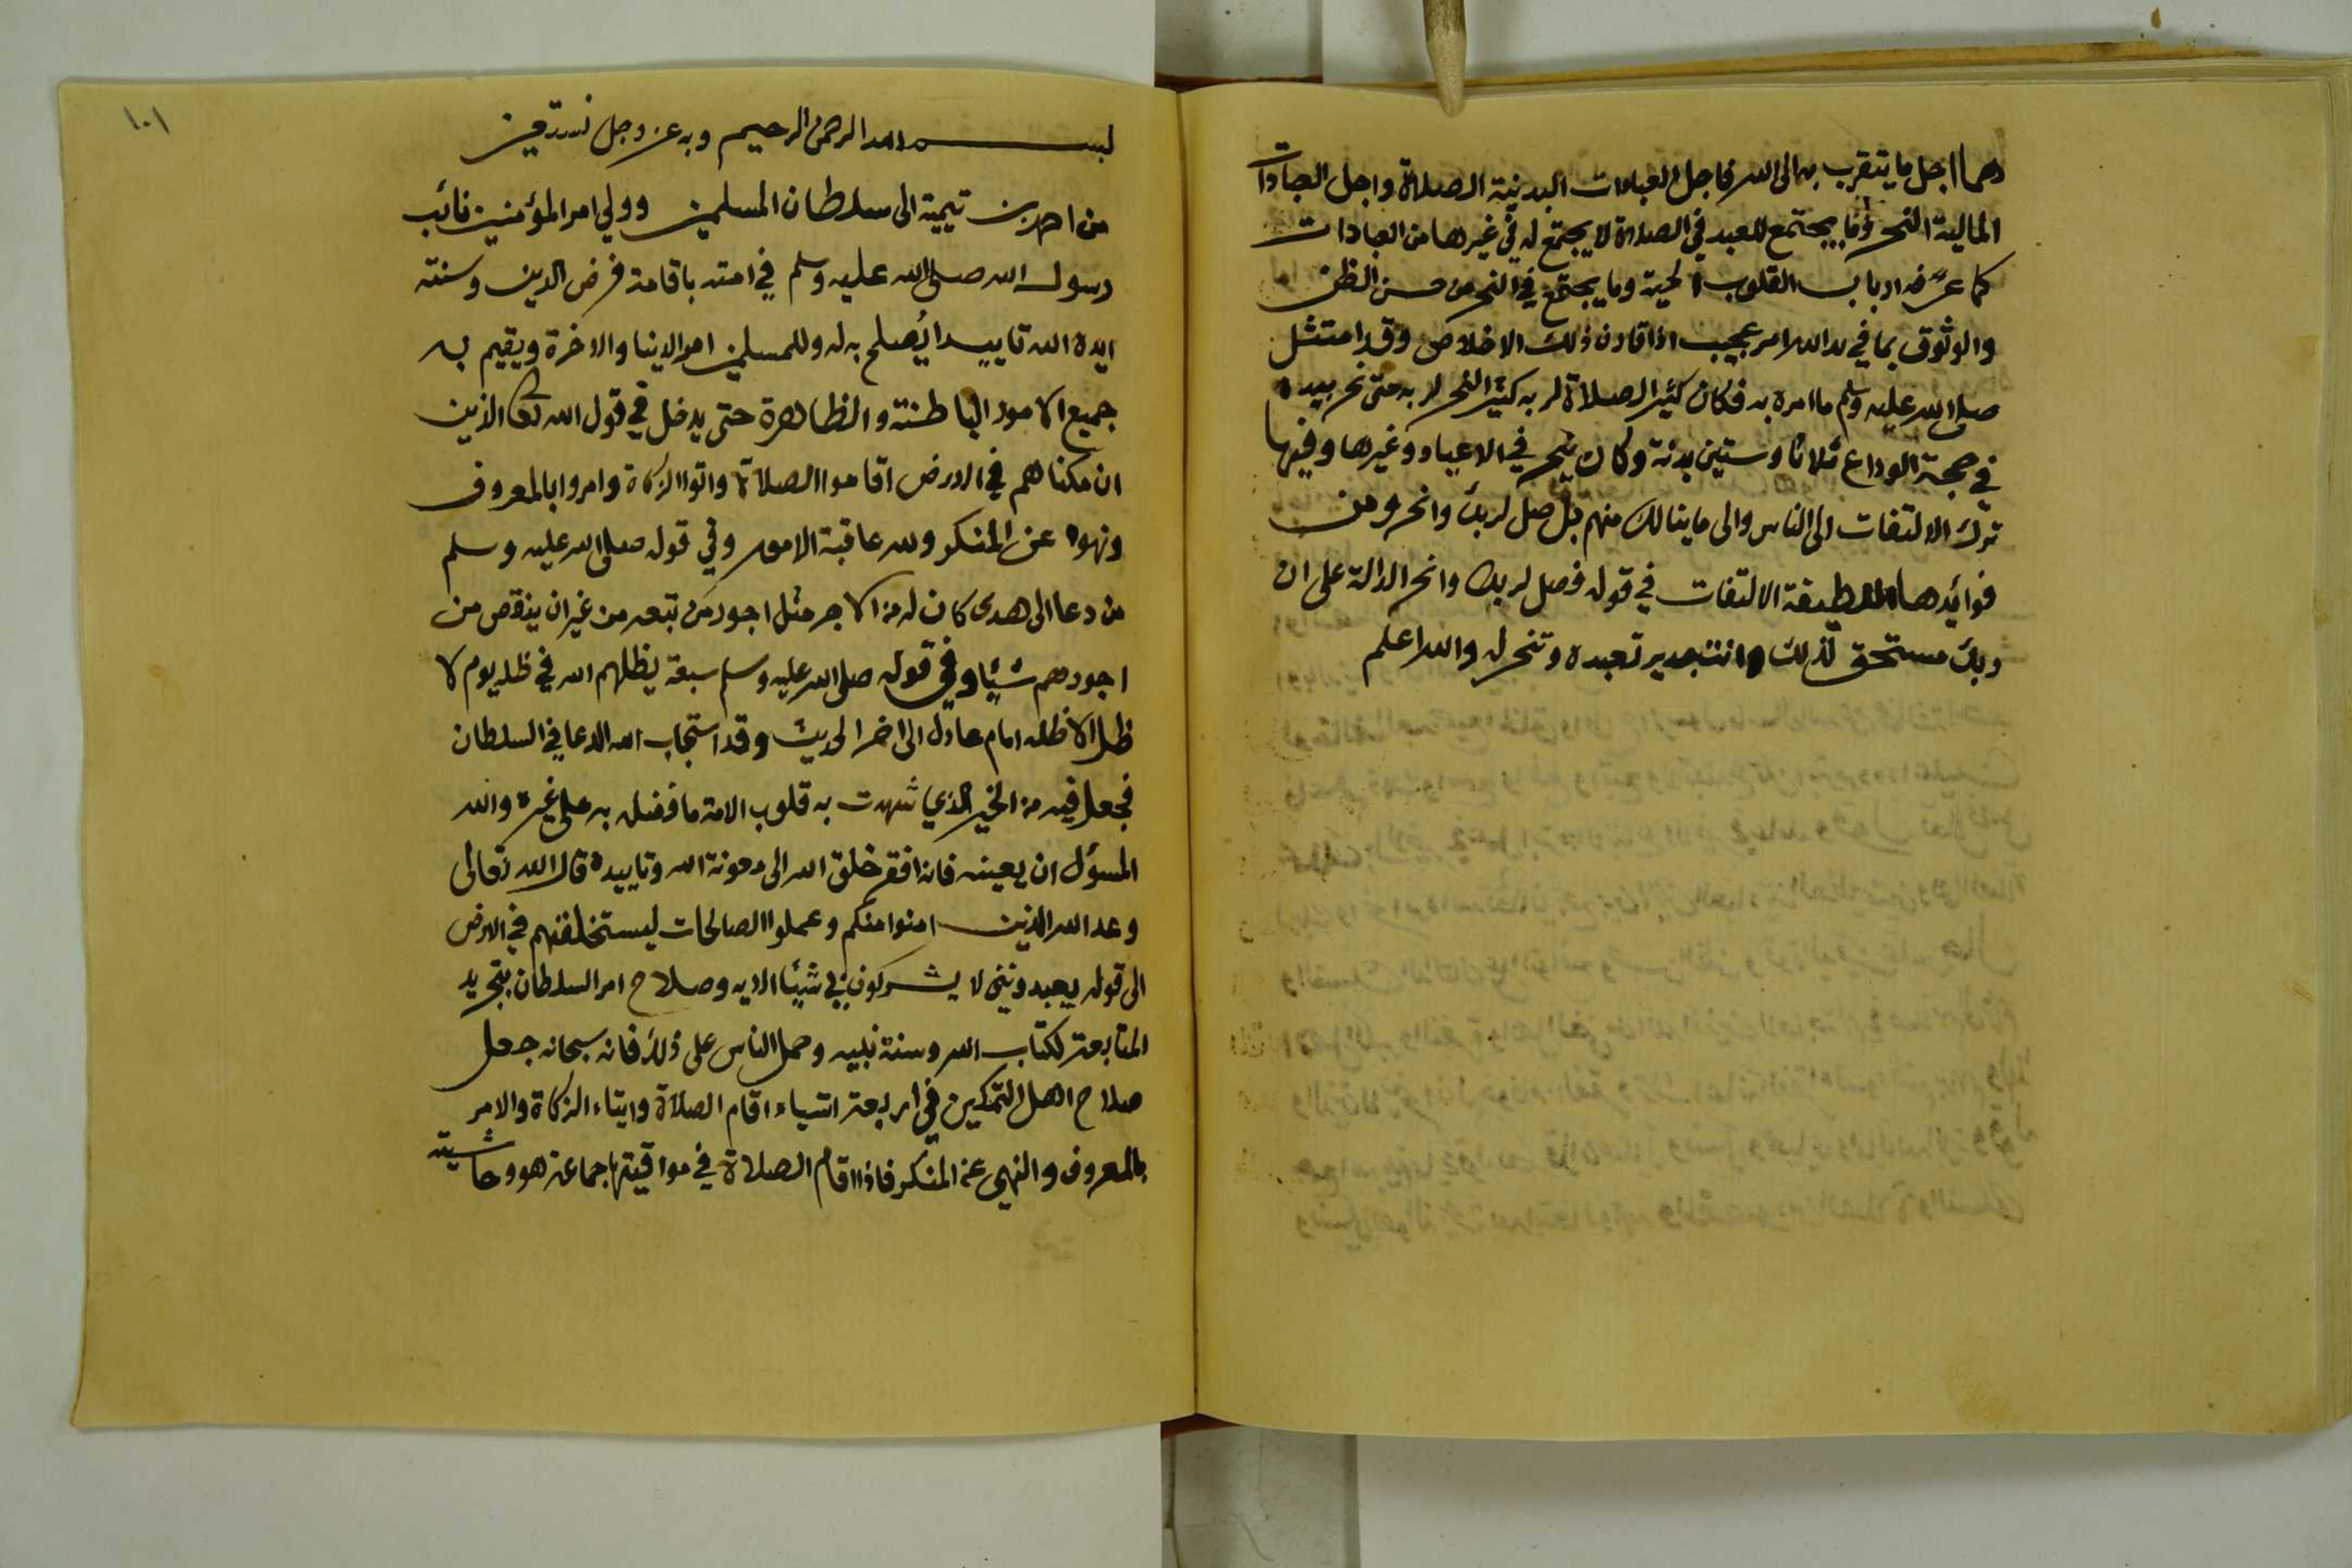 وهما اجل ما يتقرب به الى الله فاجل العبادات البدنية الصلاة واجل العبادات
المالية النحر وما يجتمع للعبد في الصلاة لا يجتمع له في غيرها من العبادات
كما عرفه ارباب القلوب الحية وما يجتمع في النحر من حسن الظن
والوثوق بما في يد الله امر عجيب اذا قارن ذلك الاخلاص وقد امتثل
صلى الله عليه وسلم ما امره به فكان كثير الصلاة لربه كثير النحر لربه حتى نحر بيده
في حجة الوداع ثلاثا وستين بدنة وكان ينحر في الاعياد وغيرها وفيها
ترك الالتفات الى الناس والى ما ينالك منهم بل صل لربك وانحر ومن
فوائدها اللطيفة الالتفات في قوله فصل لربك وانحر الدالة على ان
ربك مستحق لذلك وانت جدير تعبده وتنحر له والله اعلم
١٠١
بسم الله الرحمن الرحيم وبه عز وجل نستعين
من احمد بن تيمية الى سلطان المسلمين وولي امر المؤمنين نائب
رسول الله صلى الله عليه وسلم في امته باقامة فرض الدين وسنته
ايده الله تاييدا يُصلح به له وللمسلمين امر الدنيا والاخرة ويقيم به
جميع الامور الباطنة والظاهرة حتى يدخل في قول الله تعالى الذين
ان مكناهم في الارض اقاموا الصلاة واتوا الزكاة وامروا بالمعروف
ونهوا عن المنكر ولله عاقبة الامور وفي قوله صلى الله عليه وسلم
من دعا الى هدى كان له من الاجر مثل اجور من تبعه من غير ان ينقص من
اجورهم شيئا وفي قوله صلى الله عليه وسلم سبعة يظلهم الله في ظله يوم لا
ظل الا ظله امام عادل الى اخر الحديث وقد استجاب الله الدعا في السلطان
فجعل فيه من الخير الذي شهدت به قلوب الامة ما فضله به على غيره والله
المسؤل ان يعينه فانه افقر خلق الله الى معونة الله وتاييده قال الله تعالى
وعد الله الذين امنوا منكم وعملوا الصالحات ليستخلفنهم في الارض
الى قوله يعبدونني لا يشركون بي شيئا الايه وصلاح امر السلطان بتجريد
المتابعة لكتاب الله وسنة نبيه وحمل الناس على ذلك فانه سبحانه جعل
صلاح اهل التمكين في اربعة اشياء اقام الصلاة وايتاء الزكاة والامر
بالمعروف والنهي عن المنكر فاذا اقام الصلاة في مواقيتها جماعة هو وحاشيته